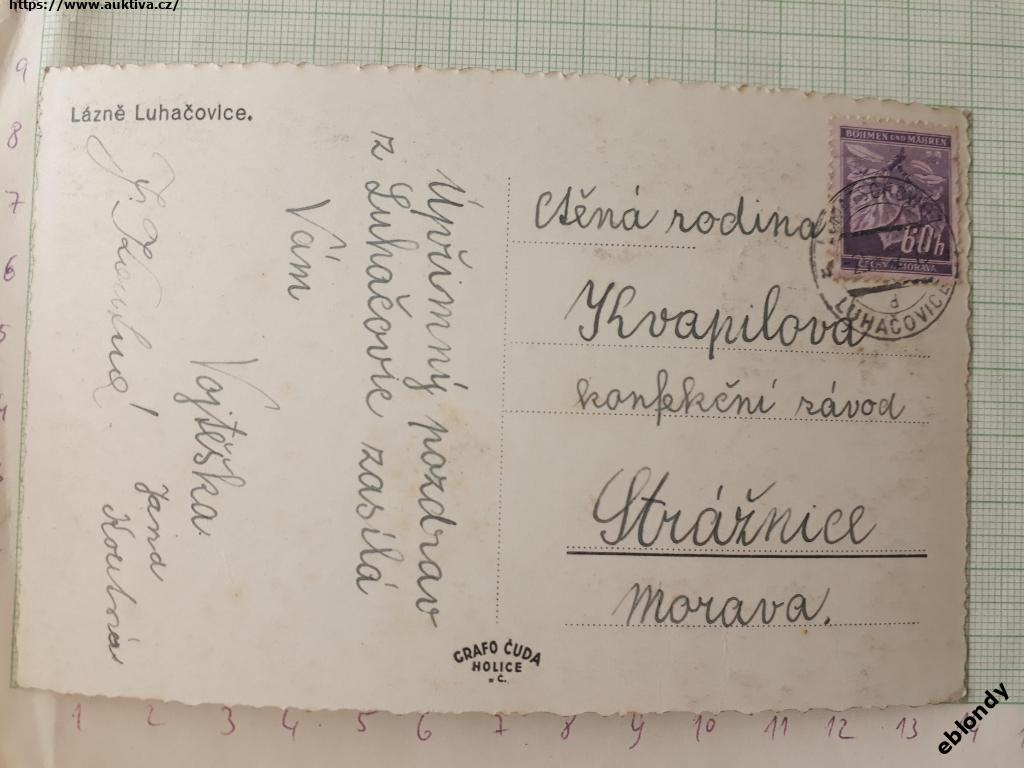 https://www.auktiva.cz/
Lázně Luhačovice.
Úpřimný pozdrav
z Luhačovic zasílá
Vám
Vojtěška
Jana
Koutná
Ctěná rodina
Kvapilova
konfekční závod
Strážnice
Morava.
BÖHMEN UND MÄHREN
60h
ČECHY A MORAVA
LUHAČOVICE
d
GRAFO ČUDA
HOLICE
č.
9
8
7
6
5
1 2 3 4 5 6 7 8 9 10 11 12 13
eblondy